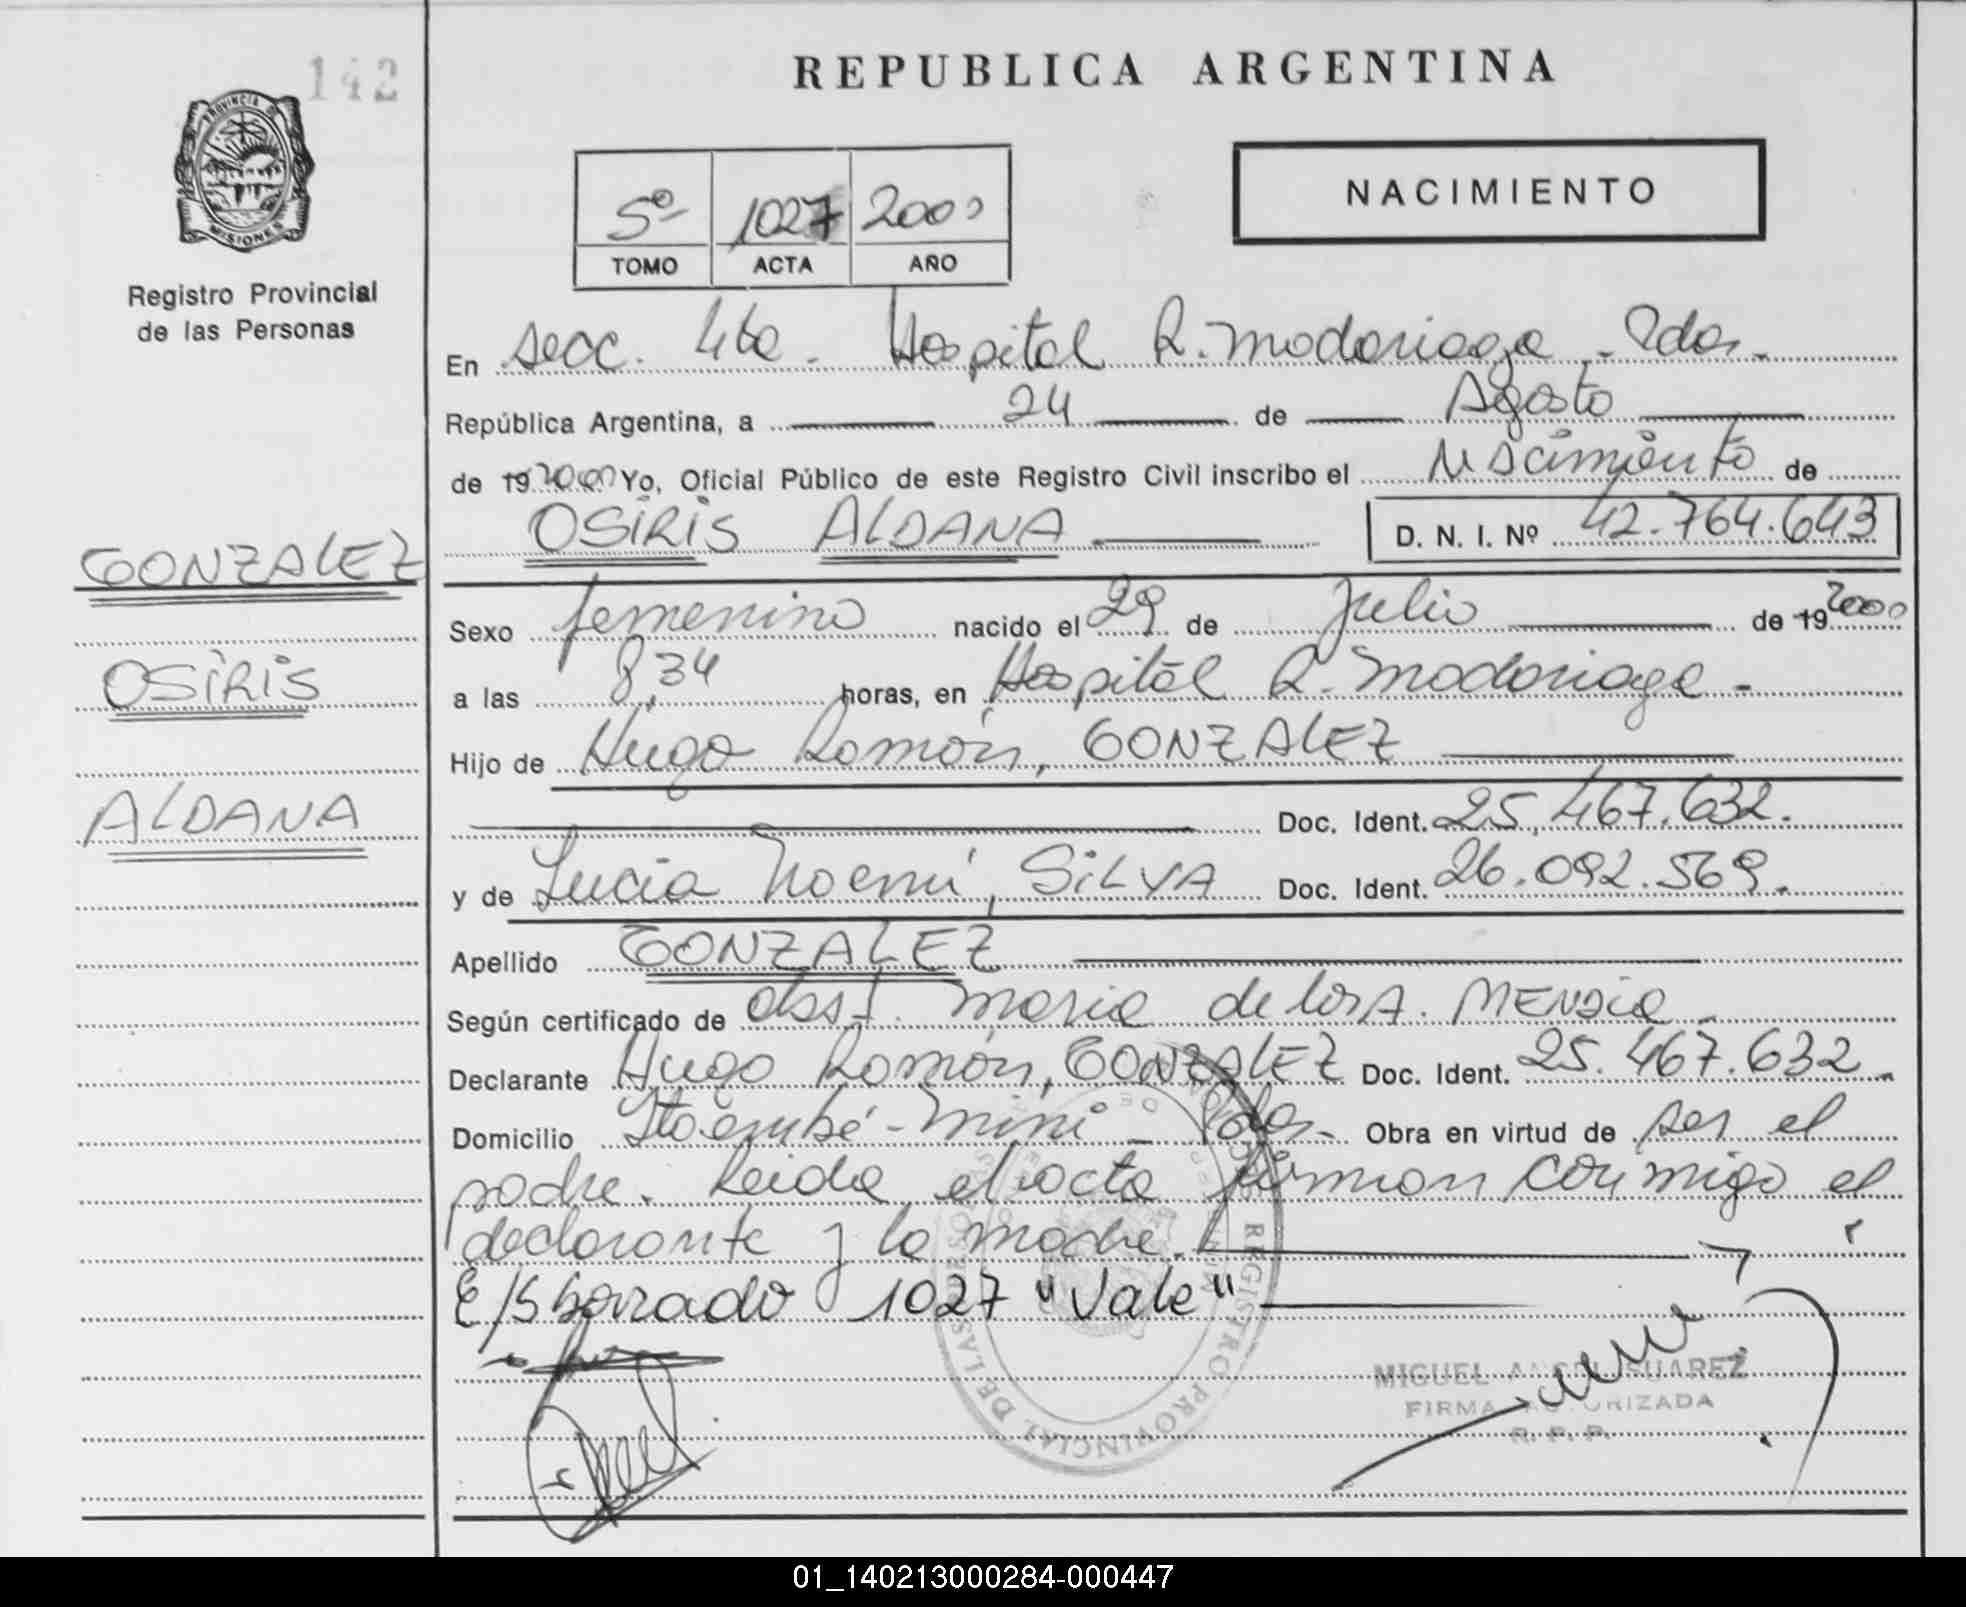 142
REPUBLICA ARGENTINA
PROVINCIA DE
MISIONES
Registro Provincial
de las Personas
5º 1027 2000
TOMO ACTA AÑO
NACIMIENTO
En secc. 4ta. Hospital R. Madariaga - Pdas.
República Argentina, a 24 de Agosto
de 19 2000 Yo, Oficial Público de este Registro Civil inscribo el Nacimiento de
OSIRIS ALDANA D. N. I. Nº 42.764.643
GONZALEZ
OSIRIS
ALDANA
Sexo femenino nacido el 29 de Julio de 19 2000
a las 8,34 horas, en Hospital R. Madariaga -
Hijo de Hugo Ramón, GONZALEZ
Doc. Ident. 25.467.632.
y de Lucia Noemí, SILVA Doc. Ident. 26.092.569.
Apellido GONZALEZ
Según certificado de obst. Maria de los A. MENDIA
Declarante Hugo Ramón, GONZALEZ Doc. Ident. 25.467.632.
Domicilio Itaembé-Miní - Pdas- Obra en virtud de ser el
padre. Leida el acta firman conmigo el
declarante y la madre.
E/S borrado 1027 "Vale"
REGISTRO PROVINCIAL DE LAS PERSONAS
MIGUEL ANGEL SUAREZ
FIRMA AUTORIZADA
R. P. P.
01_140213000284-000447